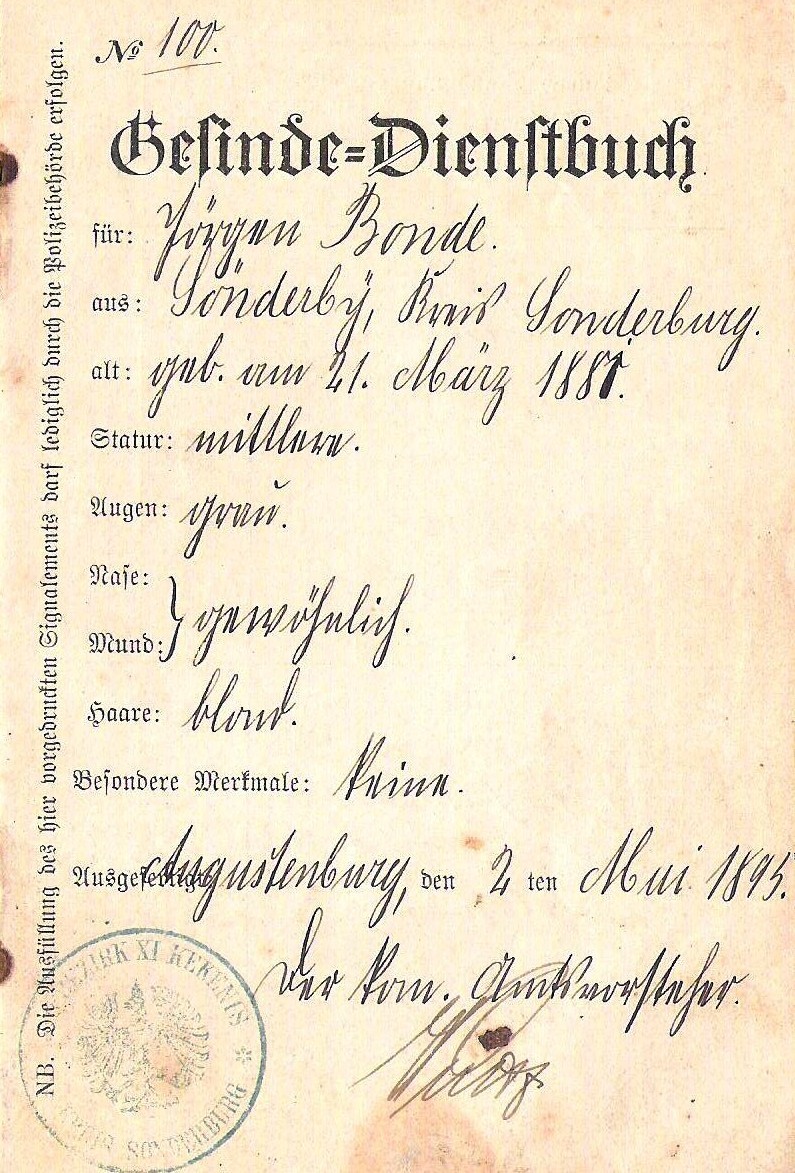 № 100.
Gesinde=Dienstbuch
für: Jörgen Bonde.
aus: Sönderby, Kreis Sonderburg.
alt: geb. am 21. März 1881.
Statur: mittlere.
Augen: grau.
Nase:
Mund: } gewöhnlich.
Haare: blond.
Besondere Merkmale: keine.
Ausgefertigt Augustenburg, den 2 ten Mai 1895.
Der kom. Amtsvorsteher.
BEZIRK XI KEKENIS
KREIS SONDERBURG
NB. Die Ausfüllung des hier vorgedruckten Signalements darf lediglich durch die Polizeibehörde erfolgen.